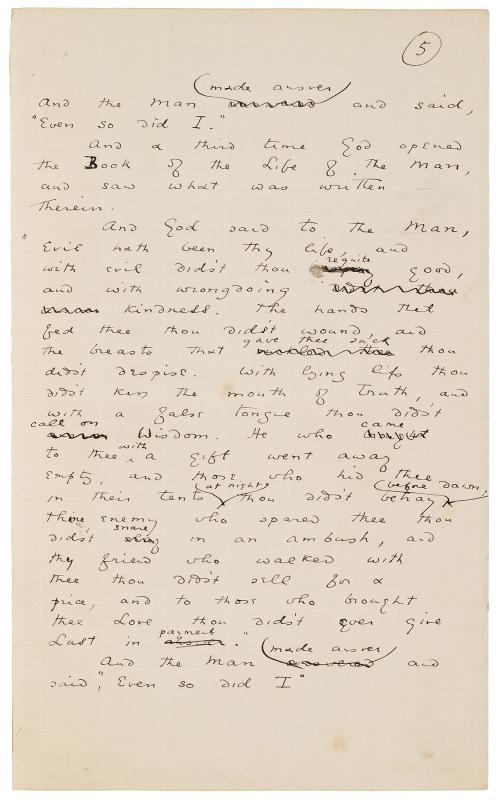 5
made answer
And the Man answered and said,
"Even so did I."
And a third time God opened
the Book of the Life of the Man,
and saw what was written
therein.
And God said to the Man,
"Evil hath been thy life, and
requite
with evil didst thou good,
and with wrongdoing
kindness. The hands that
fed thee thou didst wound, and
gave thee suck
the breasts that suckled thee thou
didst despise. With lying lips thou
didst kiss the mouth of Truth, and
with a false tongue thou didst
call on came
Wisdom. He who brought
with
to thee a gift went away
empty, and those who hid thee
(at night) (before dawn,
in their tents thou didst betray
thine enemy who spared thee thou
snare
didst in an ambush, and
thy friend who walked with
thee thou didst sell for a
price, and to those who brought
thee Love thou didst ever give
payment
Lust in answer."
made answer
And the Man answered and
said, "Even so did I"